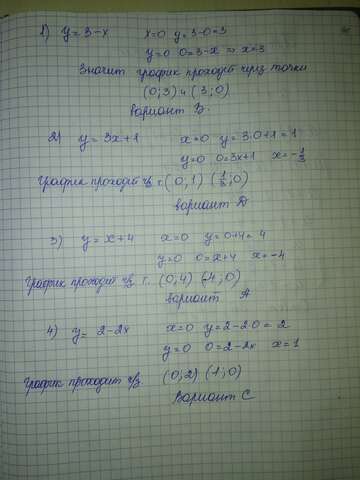 1) y = 3 - x x=0 y=3-0=3
y=0 0=3-x => x=3
Значит график проходит через точки
(0;3) и (3;0)
вариант В.
2) y = 3x+1 x=0 y=3·0+1=1
y=0 0=3x+1 x=-1/3
График проходит ч/з т. (0;1) (1/3;0)
вариант D
3) y = x+4 x=0 y=0+4=4
y=0 0=x+4 x=-4
График проходит ч/з т. (0,4) (-4;0)
вариант А
4) y= 2-2x x=0 y=2-2·0=2
y=0 0=2-2x x=1
График проходит ч/з. (0;2) (1;0)
Вариант С